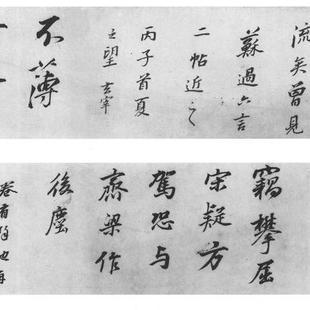 流矣曾見
蘇過六言
二帖近之
丙子首夏
之望 玄宰
不薄
竊攀屈
宋疑方
駕恐与
齊梁作
後塵
卷有餘地再